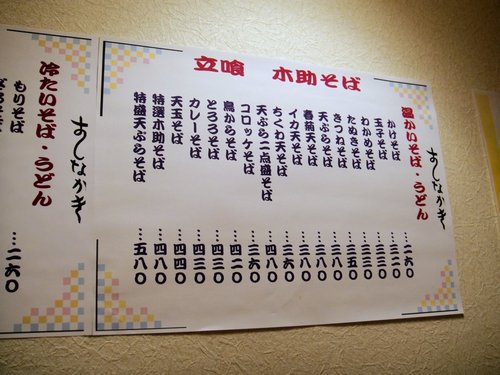 立喰 木助そば
おしながき
温かいそば・うどん
かけそば …二六〇
玉子そば …三二〇
わかめそば …三三〇
たぬきそば …三三〇
きつねそば …三五〇
天ぷらそば …三八〇
春菊天そば …三八〇
イカ天そば
ちくわ天そば …三六〇
天ぷら二点盛そば …四八〇
コロッケそば …三六〇
鳥からそば …四二〇
とろろそば …四三〇
カレーそば …四三〇
天玉そば …四四〇
特選木助そば …四八〇
特盛天ぷらそば …五八〇
おしながき
冷たいそば・うどん
もりそば …二六〇